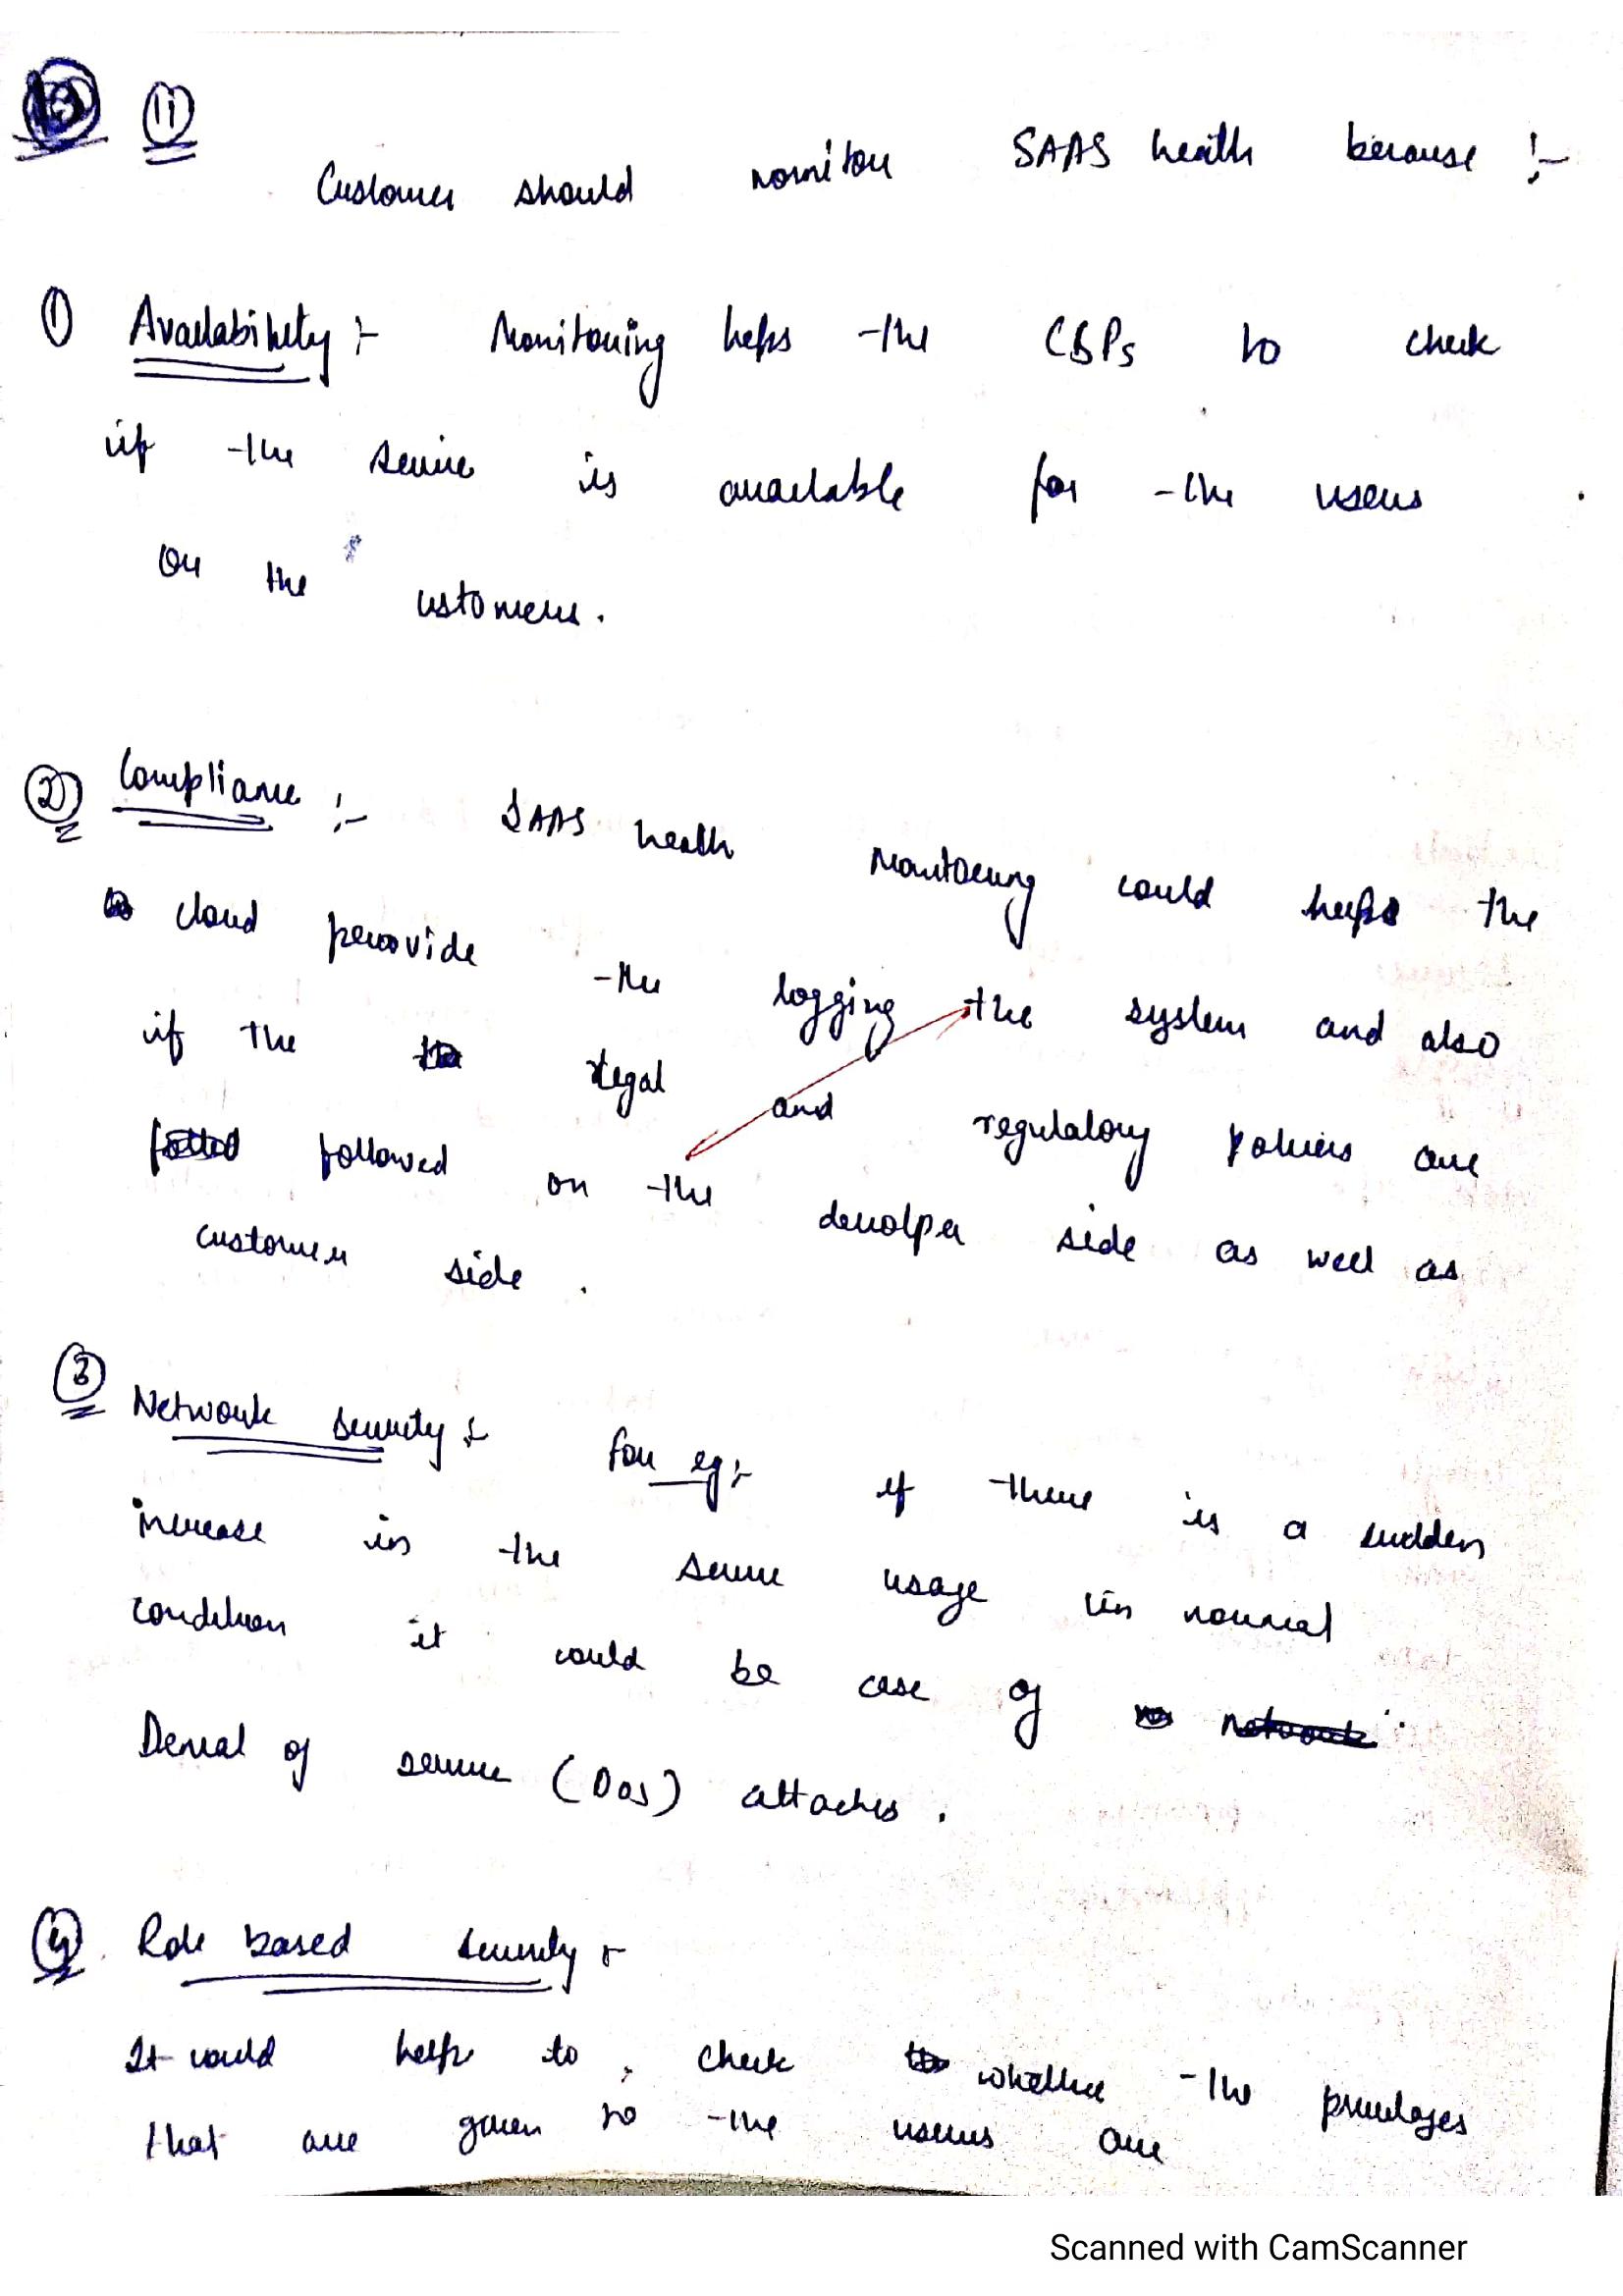 11
Customer should monitor SAAS health because :-
① Availability :- Monitoring helps the CSPs to check
if the service is available for the users
or the customers.
② Compliance :- SAAS health Monitoring could helps the
cloud provide the logging the system and also
if the legal and regulatory policies are
followed on the develper side as well as
customer side .
③ Network security :- for eg :- if there is a sudden
increase in the service usage in normal
condition it could be case of
Denial of service (DOS) attackes .
④ Role based security :-
It could help to check whether the privileges
that are given to the users are
Scanned with CamScanner